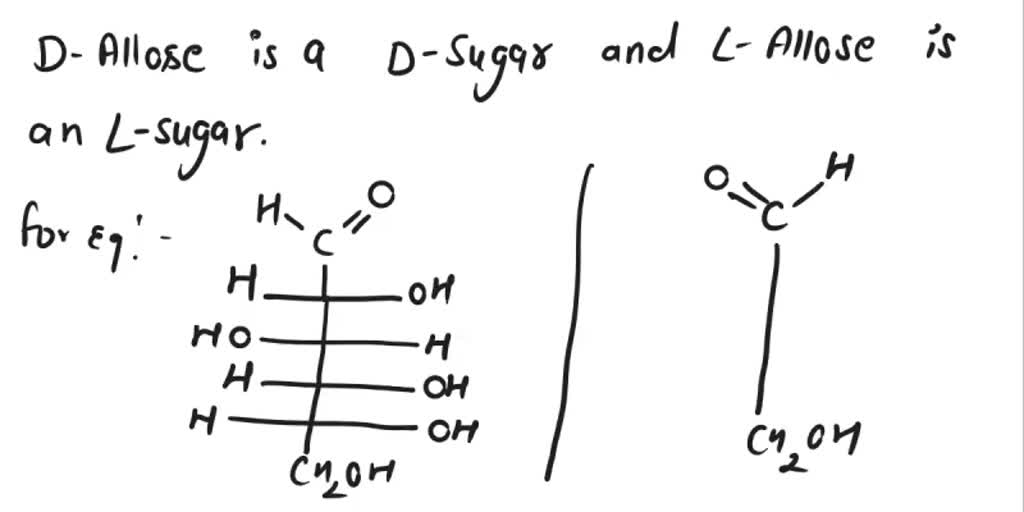 D-Allose is a D-Sugar and L-Allose is
an L-sugar.
for Eg:-
H C O
O C H
H OH
HO H
H OH
H OH
CH2OH
CH2OH